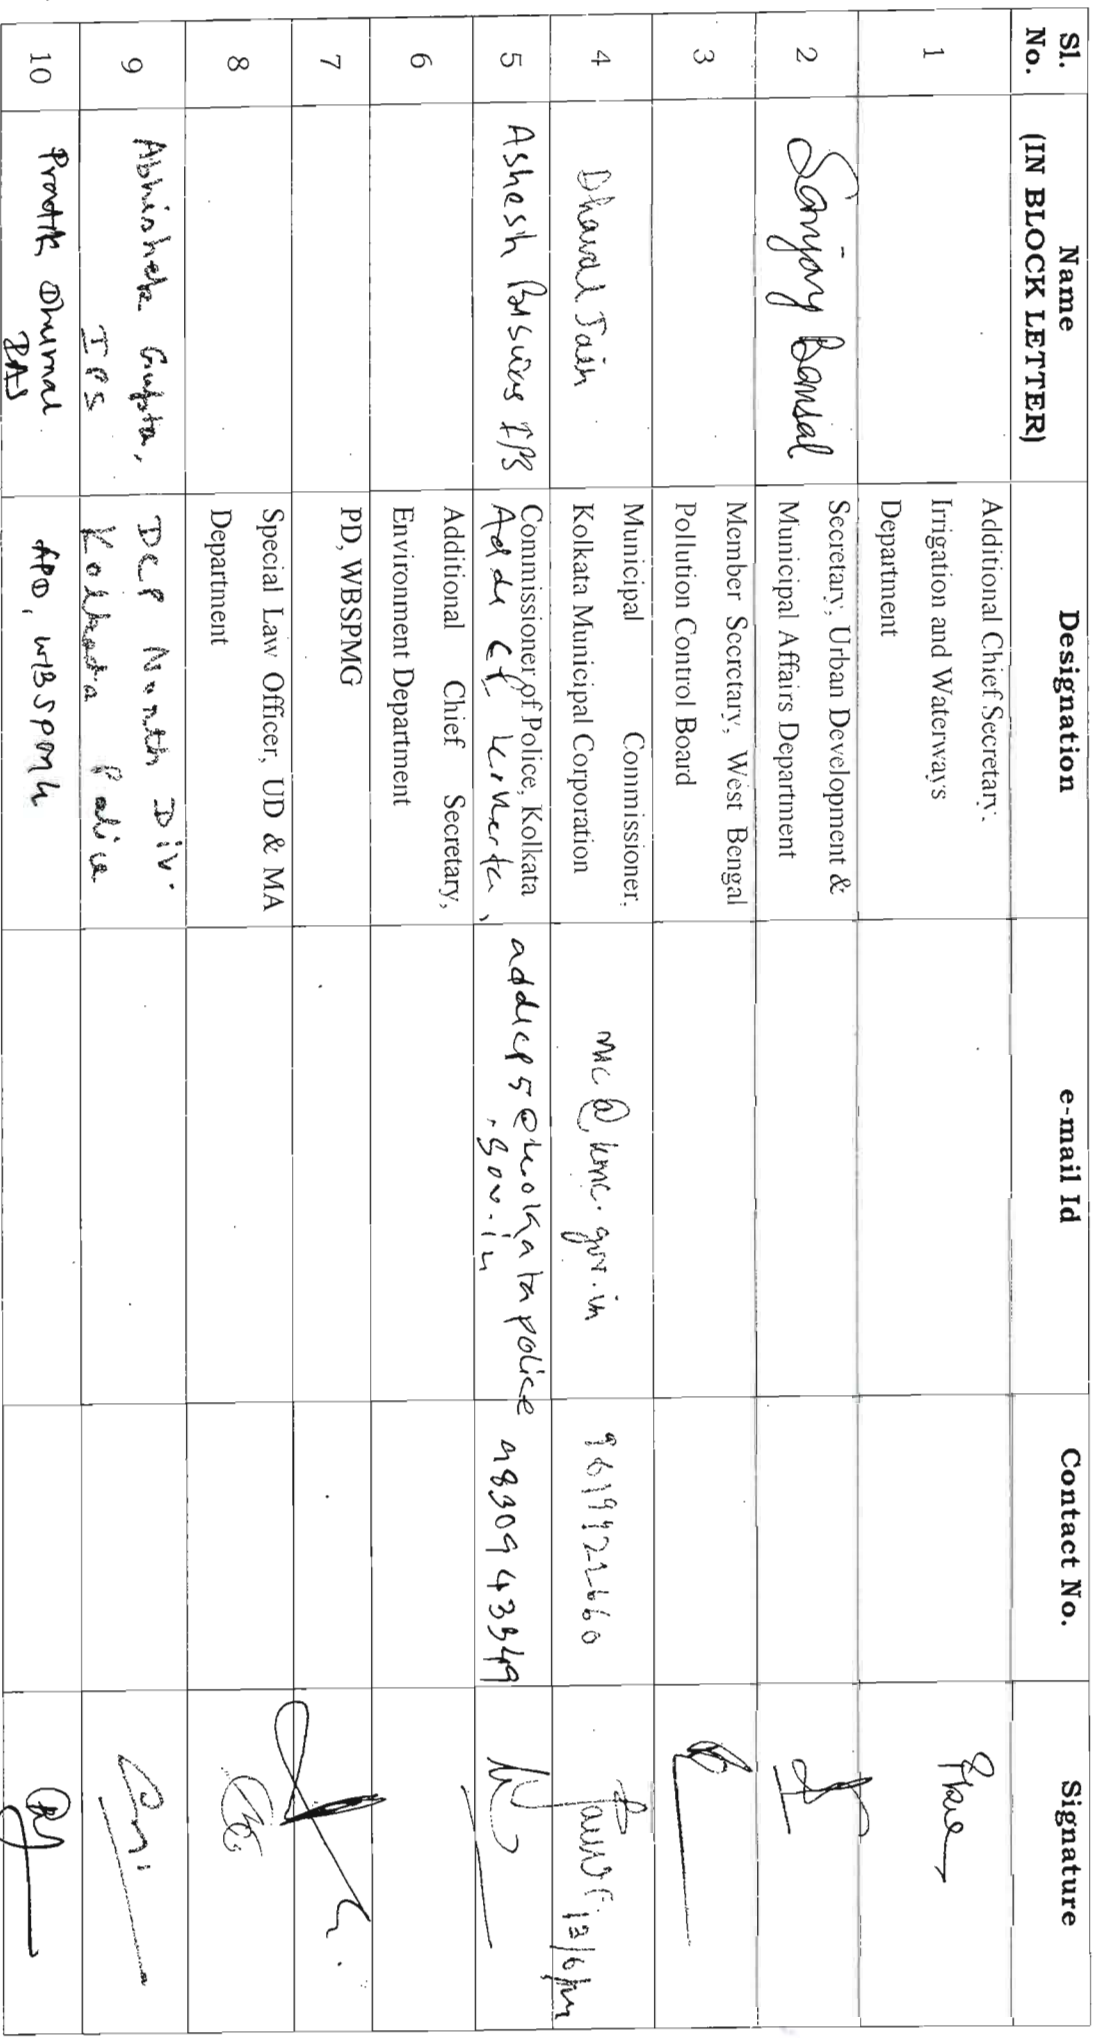 Sl. No. Name (IN BLOCK LETTER) Designation e-mail Id Contact No. Signature
1 Additional Chief Secretary,
Irrigation and Waterways
Department
2 Sanjay Bansal Secretary, Urban Development &
Municipal Affairs Department
3 Member Secretary, West Bengal
Pollution Control Board
4 Dhaval Jain Municipal Commissioner,
Kolkata Municipal Corporation mc@kmc.gov.in
5 Ashesh Biswas IPS Commissioner of Police, Kolkata
Addl CP Kolkata, addlcp5@kolkatapolice
.gov.in 9830943349
6 Additional Chief Secretary,
Environment Department
7 PD, WBSPMG
8 Special Law Officer, UD & MA
Department
9 Abhishek Gupta, DCP North Div.
IPS Kolkata Police
10 Dhumal APD, WBSPMG